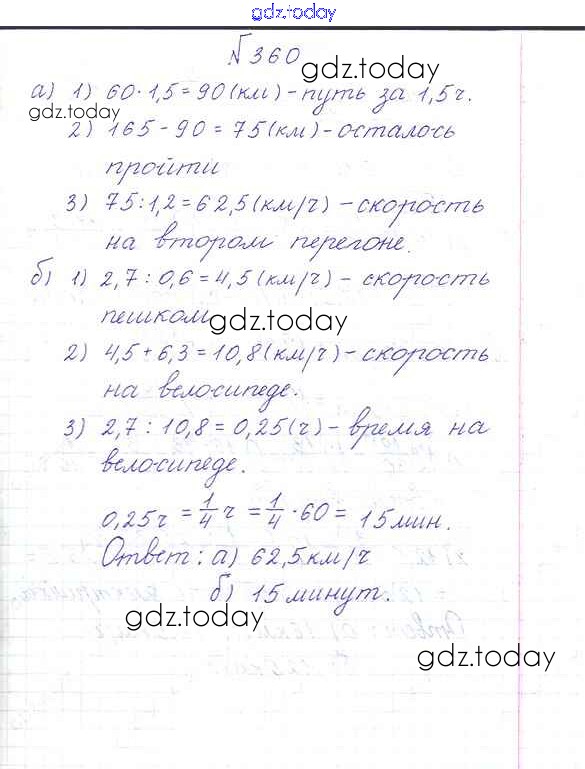 gdz.today
№360
gdz.today
а) 1) 60·1,5=90(км)-путь за 1,5ч.
gdz.today
2) 165-90=75(км)-осталось
пройти
3) 75:1,2=62,5(км/ч)-скорость
на втором перегоне.
б) 1) 2,7:0,6=4,5(км/ч)-скорость
пешком
gdz.today
2) 4,5+6,3=10,8(км/ч)-скорость
на велосипеде.
3) 2,7:10,8=0,25(ч)-время на
велосипеде.
0,25ч = 1/4 ч = 1/4 · 60 = 15мин.
Ответ: а) 62,5км/ч
б) 15минут.
gdz.today
gdz.today